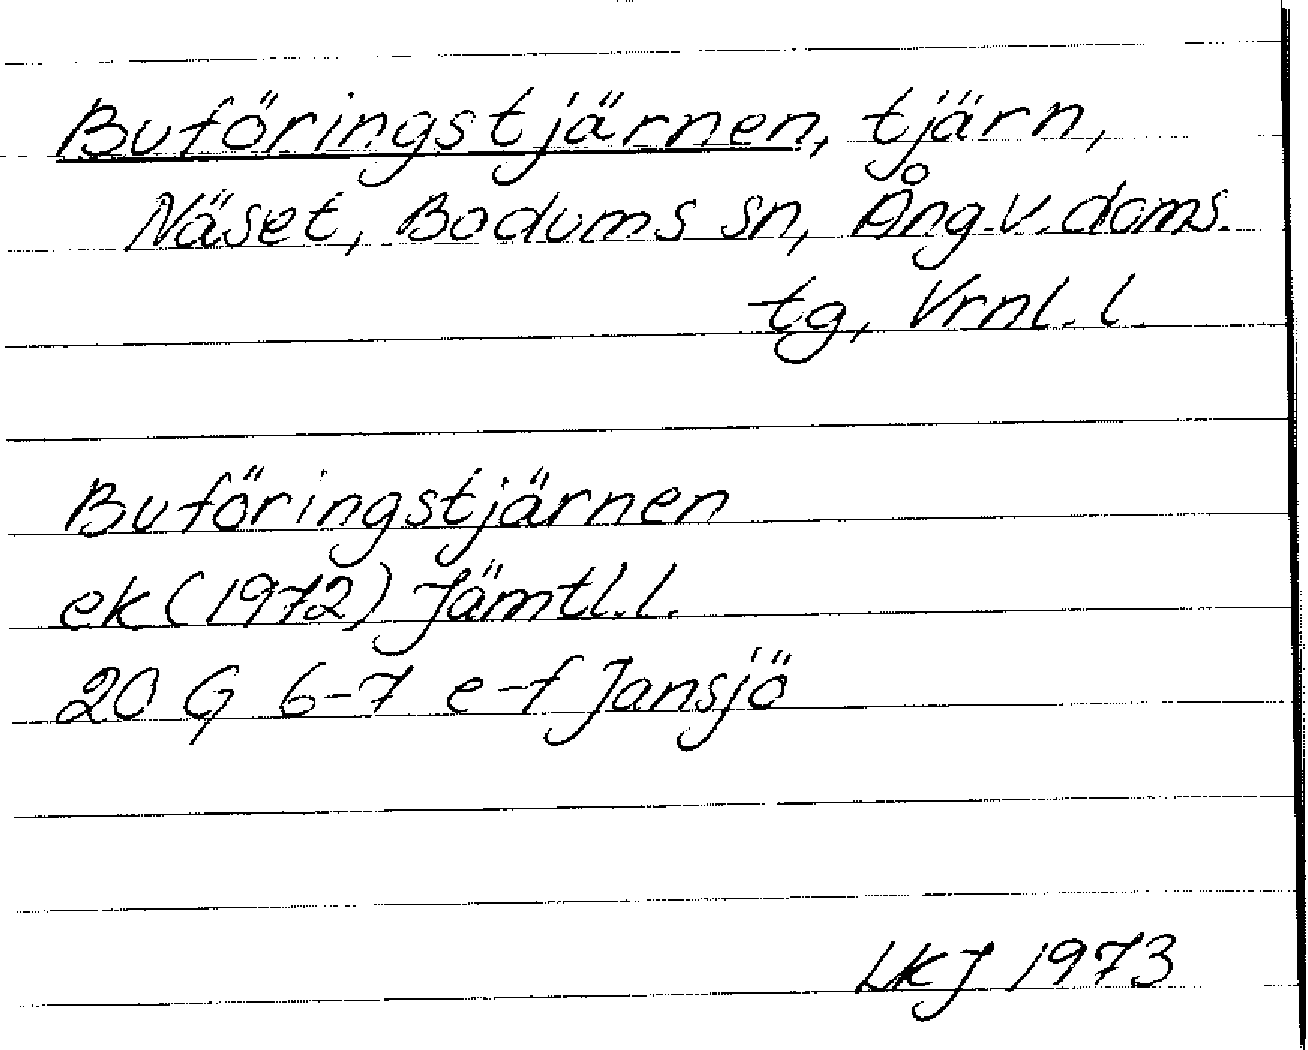 Buföringstjärnen, tjärn,
Näset, Bodums sn, Ång.v.doms.
tg, Vrnl. l.
Buföringstjärnen
ek (1972) Jämtl.l.
20 G 6-7 e-f Jansjö
LKJ 1973